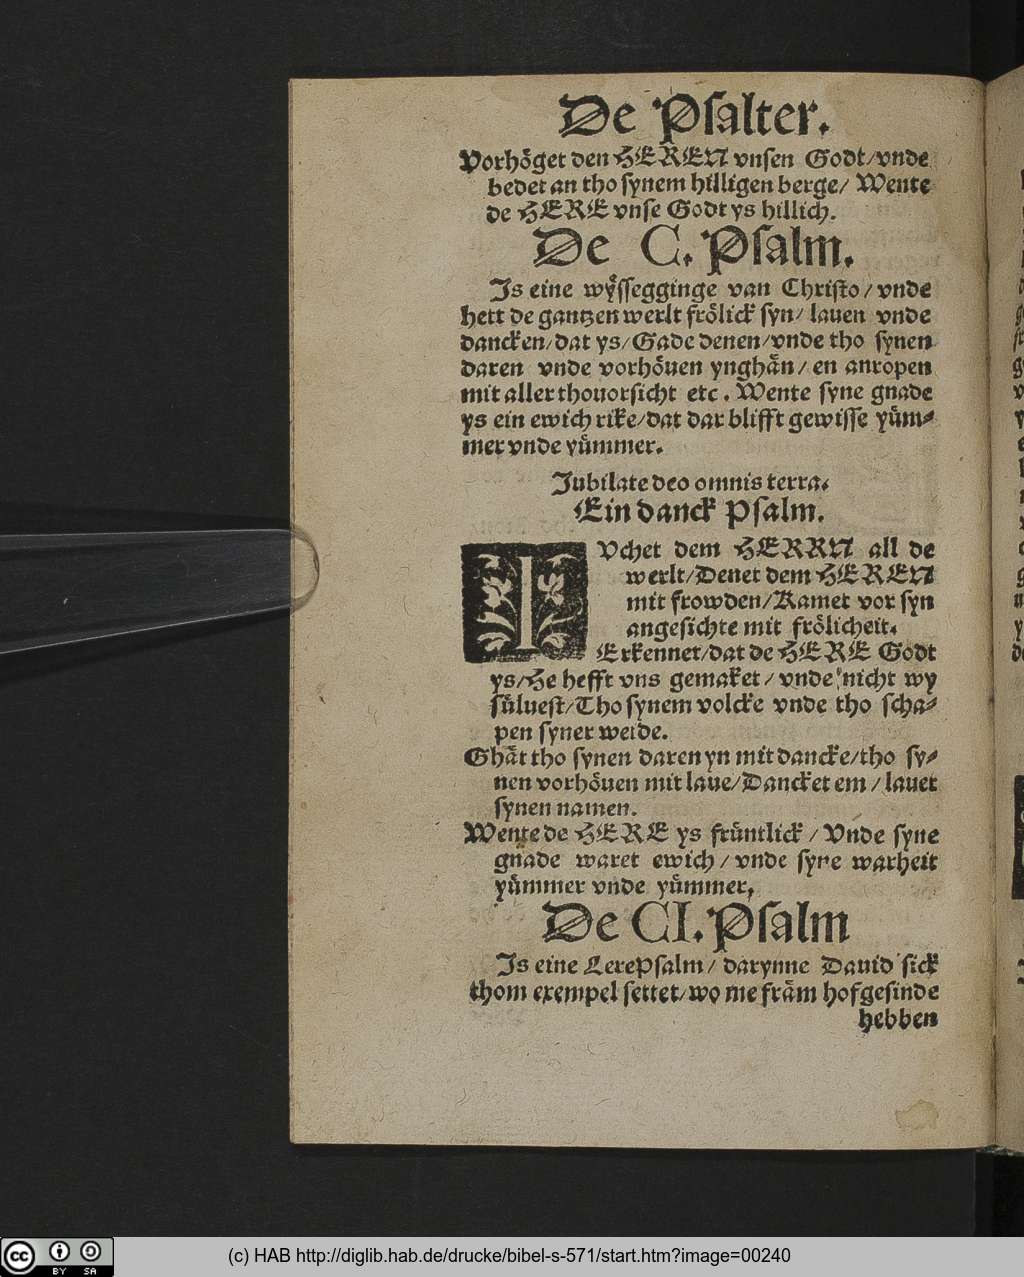 De Psalter.
Vorhöget den HEREN vnsen Godt/vnde
bedet an tho synem hilligen berge/ Wente
de HERE vnse Godt ys hillich.
De C. Psalm.
Is eine wÿssegginge van Christo/ vnde
hett de gantzen werlt frölick syn/ lauen vnde
dancken/dat ys/Gade denen/vnde tho synen
daren vnde vorhöuen ynghån/ en anropen
mit aller thouorsicht etc. Wente syne gnade
ys ein ewich rike/dat dar blifft gewisse yüm-
mer vnde yümmer.
Iubilate deo omnis terra.
Ein danck Psalm.
IVchet dem HERRN all de
werlt/Denet dem HEREN
mit frowden/Kamet vor syn
angesichte mit frölicheit.
Erkennet/dat de HERE Godt
ys/He hefft vns gemaket/ vnde nicht wy
süluest/Tho synem volcke vnde tho scha-
pen syner weide.
Ghåt tho synen daren yn mit dancke/tho sy-
nen vorhöuen mit laue/Dancket em/lauet
synen namen.
Wente de HERE ys früntlick/ Vnde syne
gnade waret ewich/ vnde syne warheit
yümmer vnde yümmer,
De CI. Psalm
Is eine LerePsalm/ darynne Dauid sick
thom exempel settet/wo me fråm hofgesinde
hebben
(c) HAB http://diglib.hab.de/drucke/bibel-s-571/start.htm?image=00240
cc BY SA